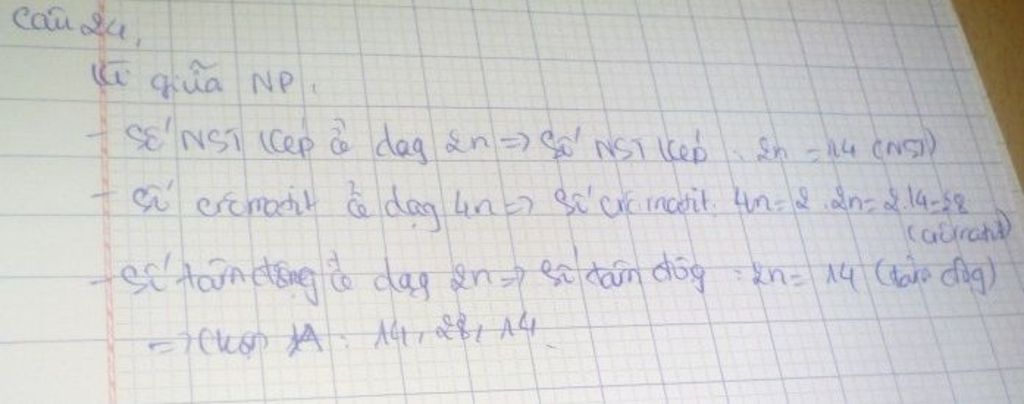 Câu 24,
Kì giữa NP.
- Số NST kép ở dạg 2n => Số NST kép : 2n = 14 (NST)
- Số crômatit ở dạg 4n => Số crômatit: 4n = 2.2n = 2.14 = 28
(crômatit)
- Số tâm động ở dạg 2n => Số tâm độg : 2n = 14 (tâm độg)
=> Chọn A : 14, 28, 14.